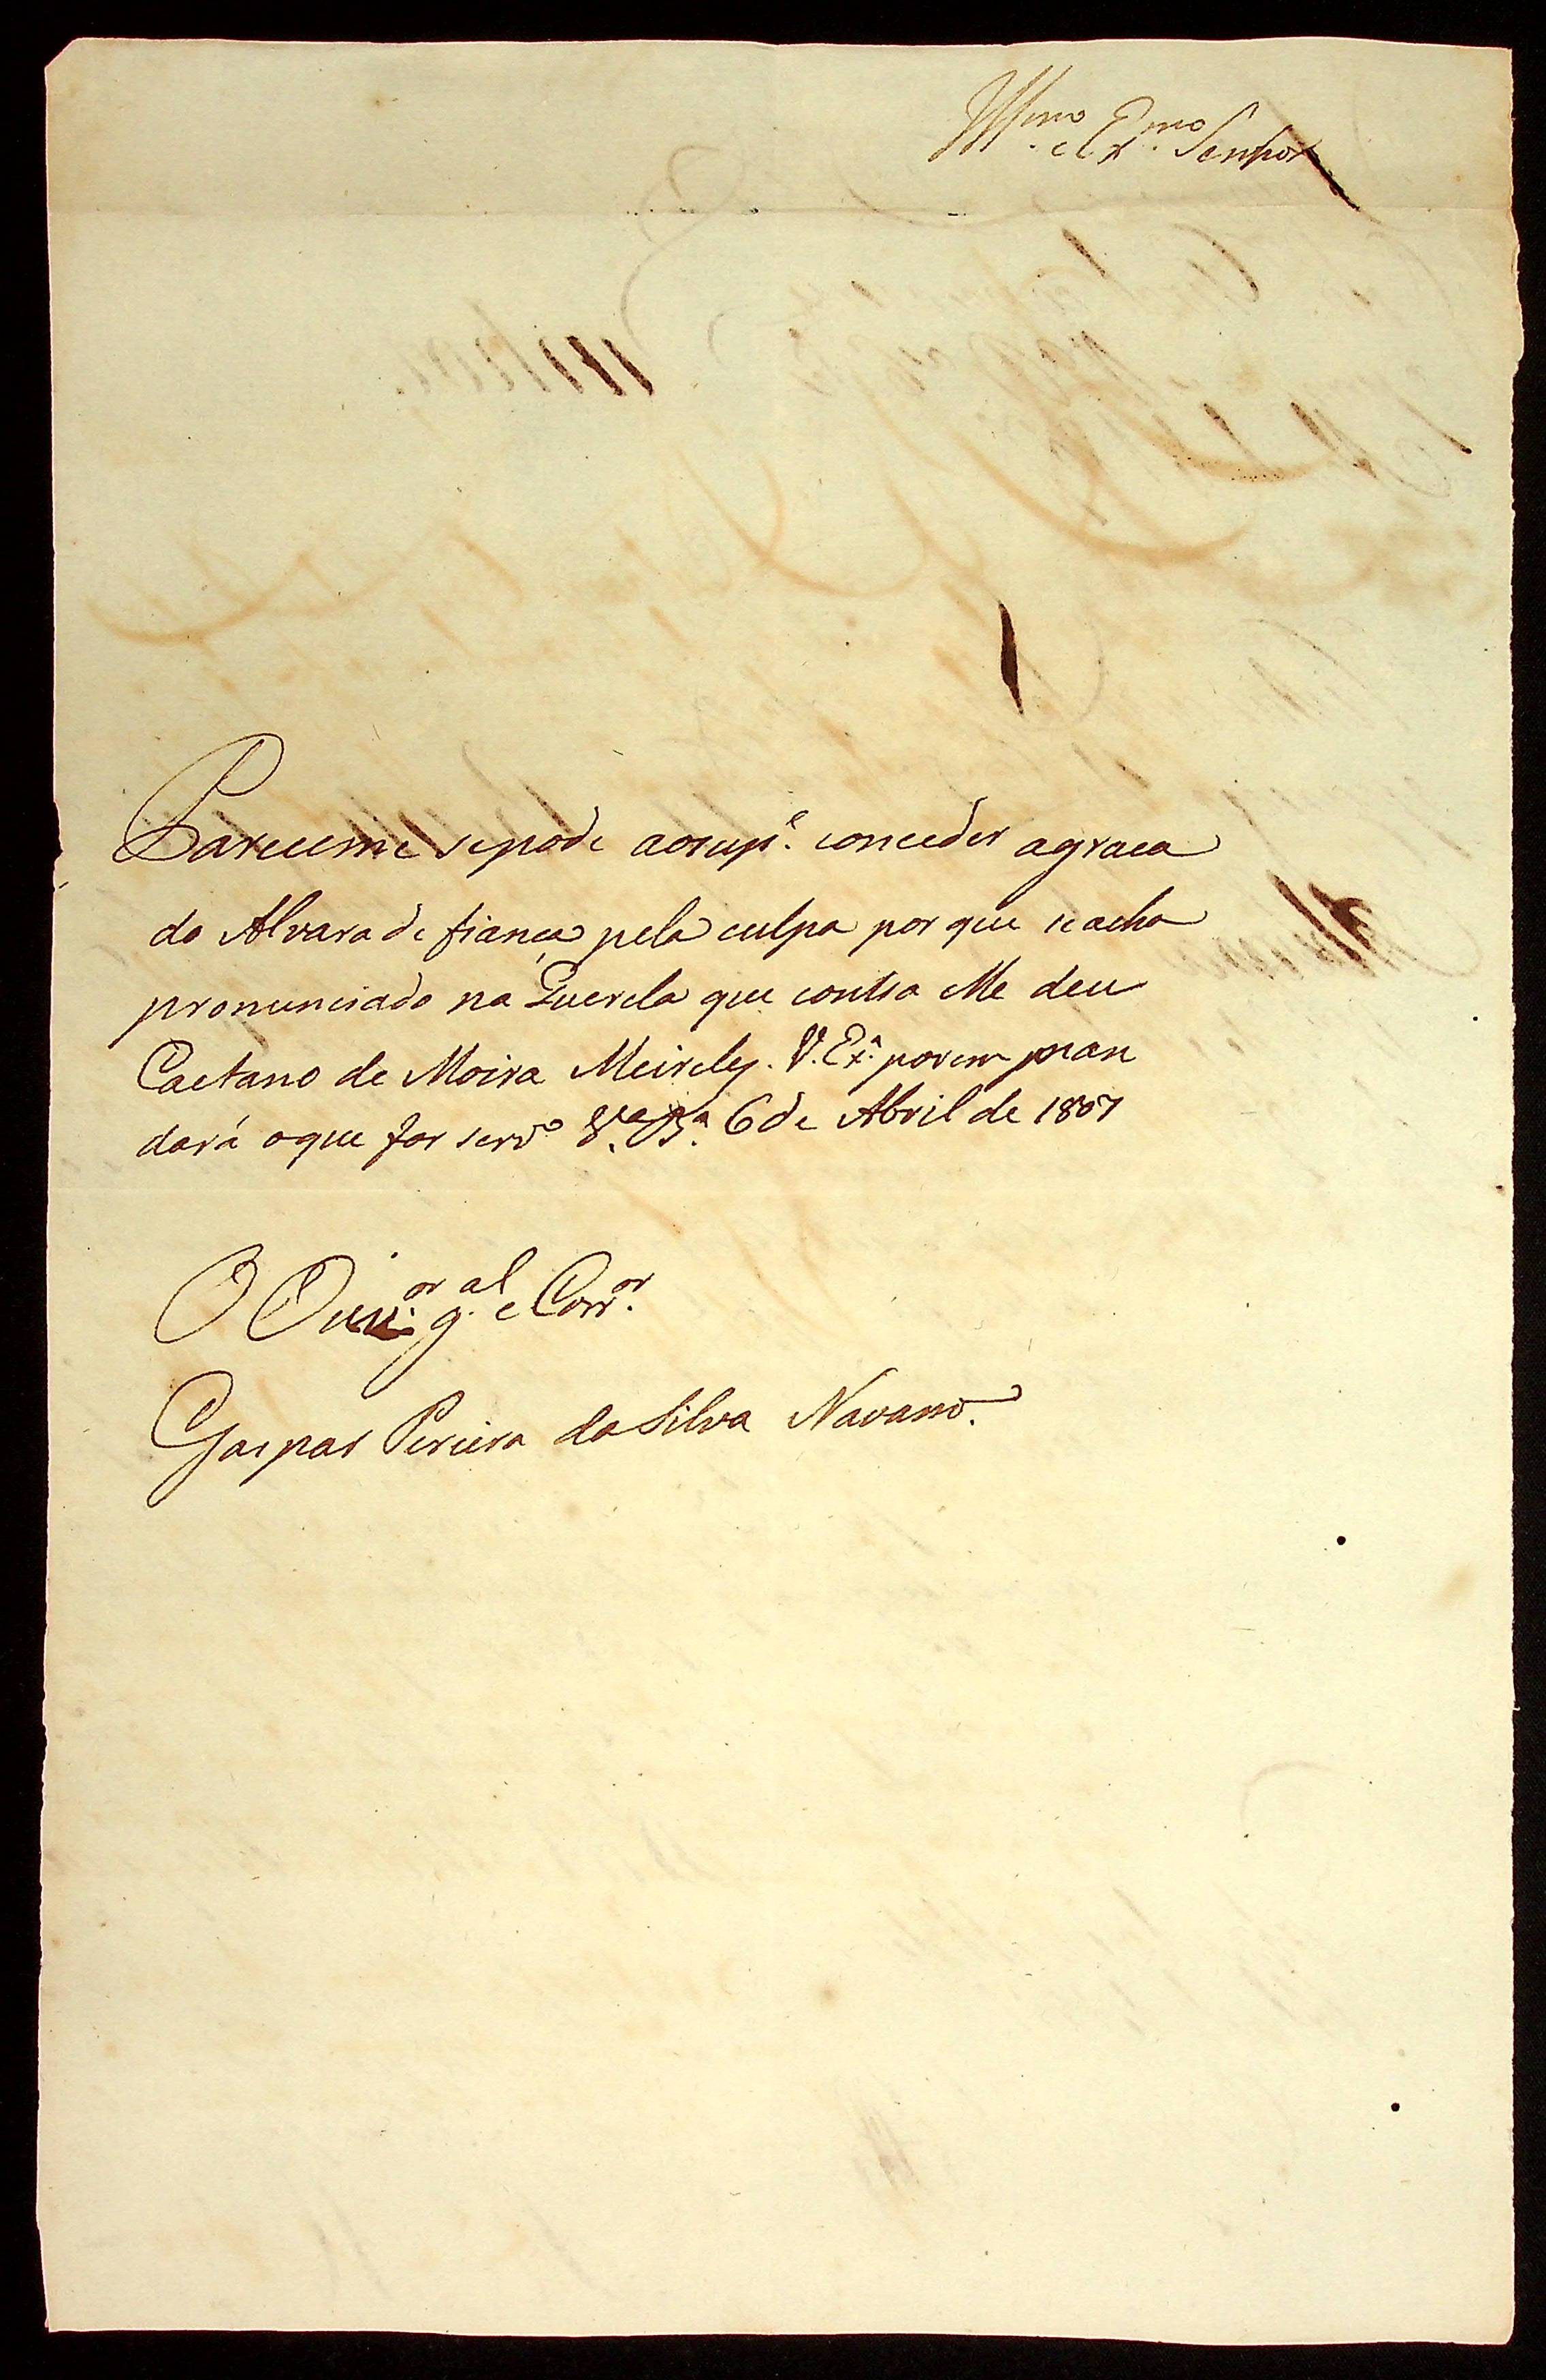 Illmo. e Exmo. Senhor
Pareceme se pode ao sup.e conceder a graca
do Alvara de fiança pela culpa por que se acha
pronunciado na Querela que contra elle deu
Caetano de Moira Meireles. V. Ex.a porem man
dará o que for serv.o V.a B.a 6 de Abril de 1807
O Ouv.or g.al e Corr.or
Gaspar Pereira da Silva Navarro.